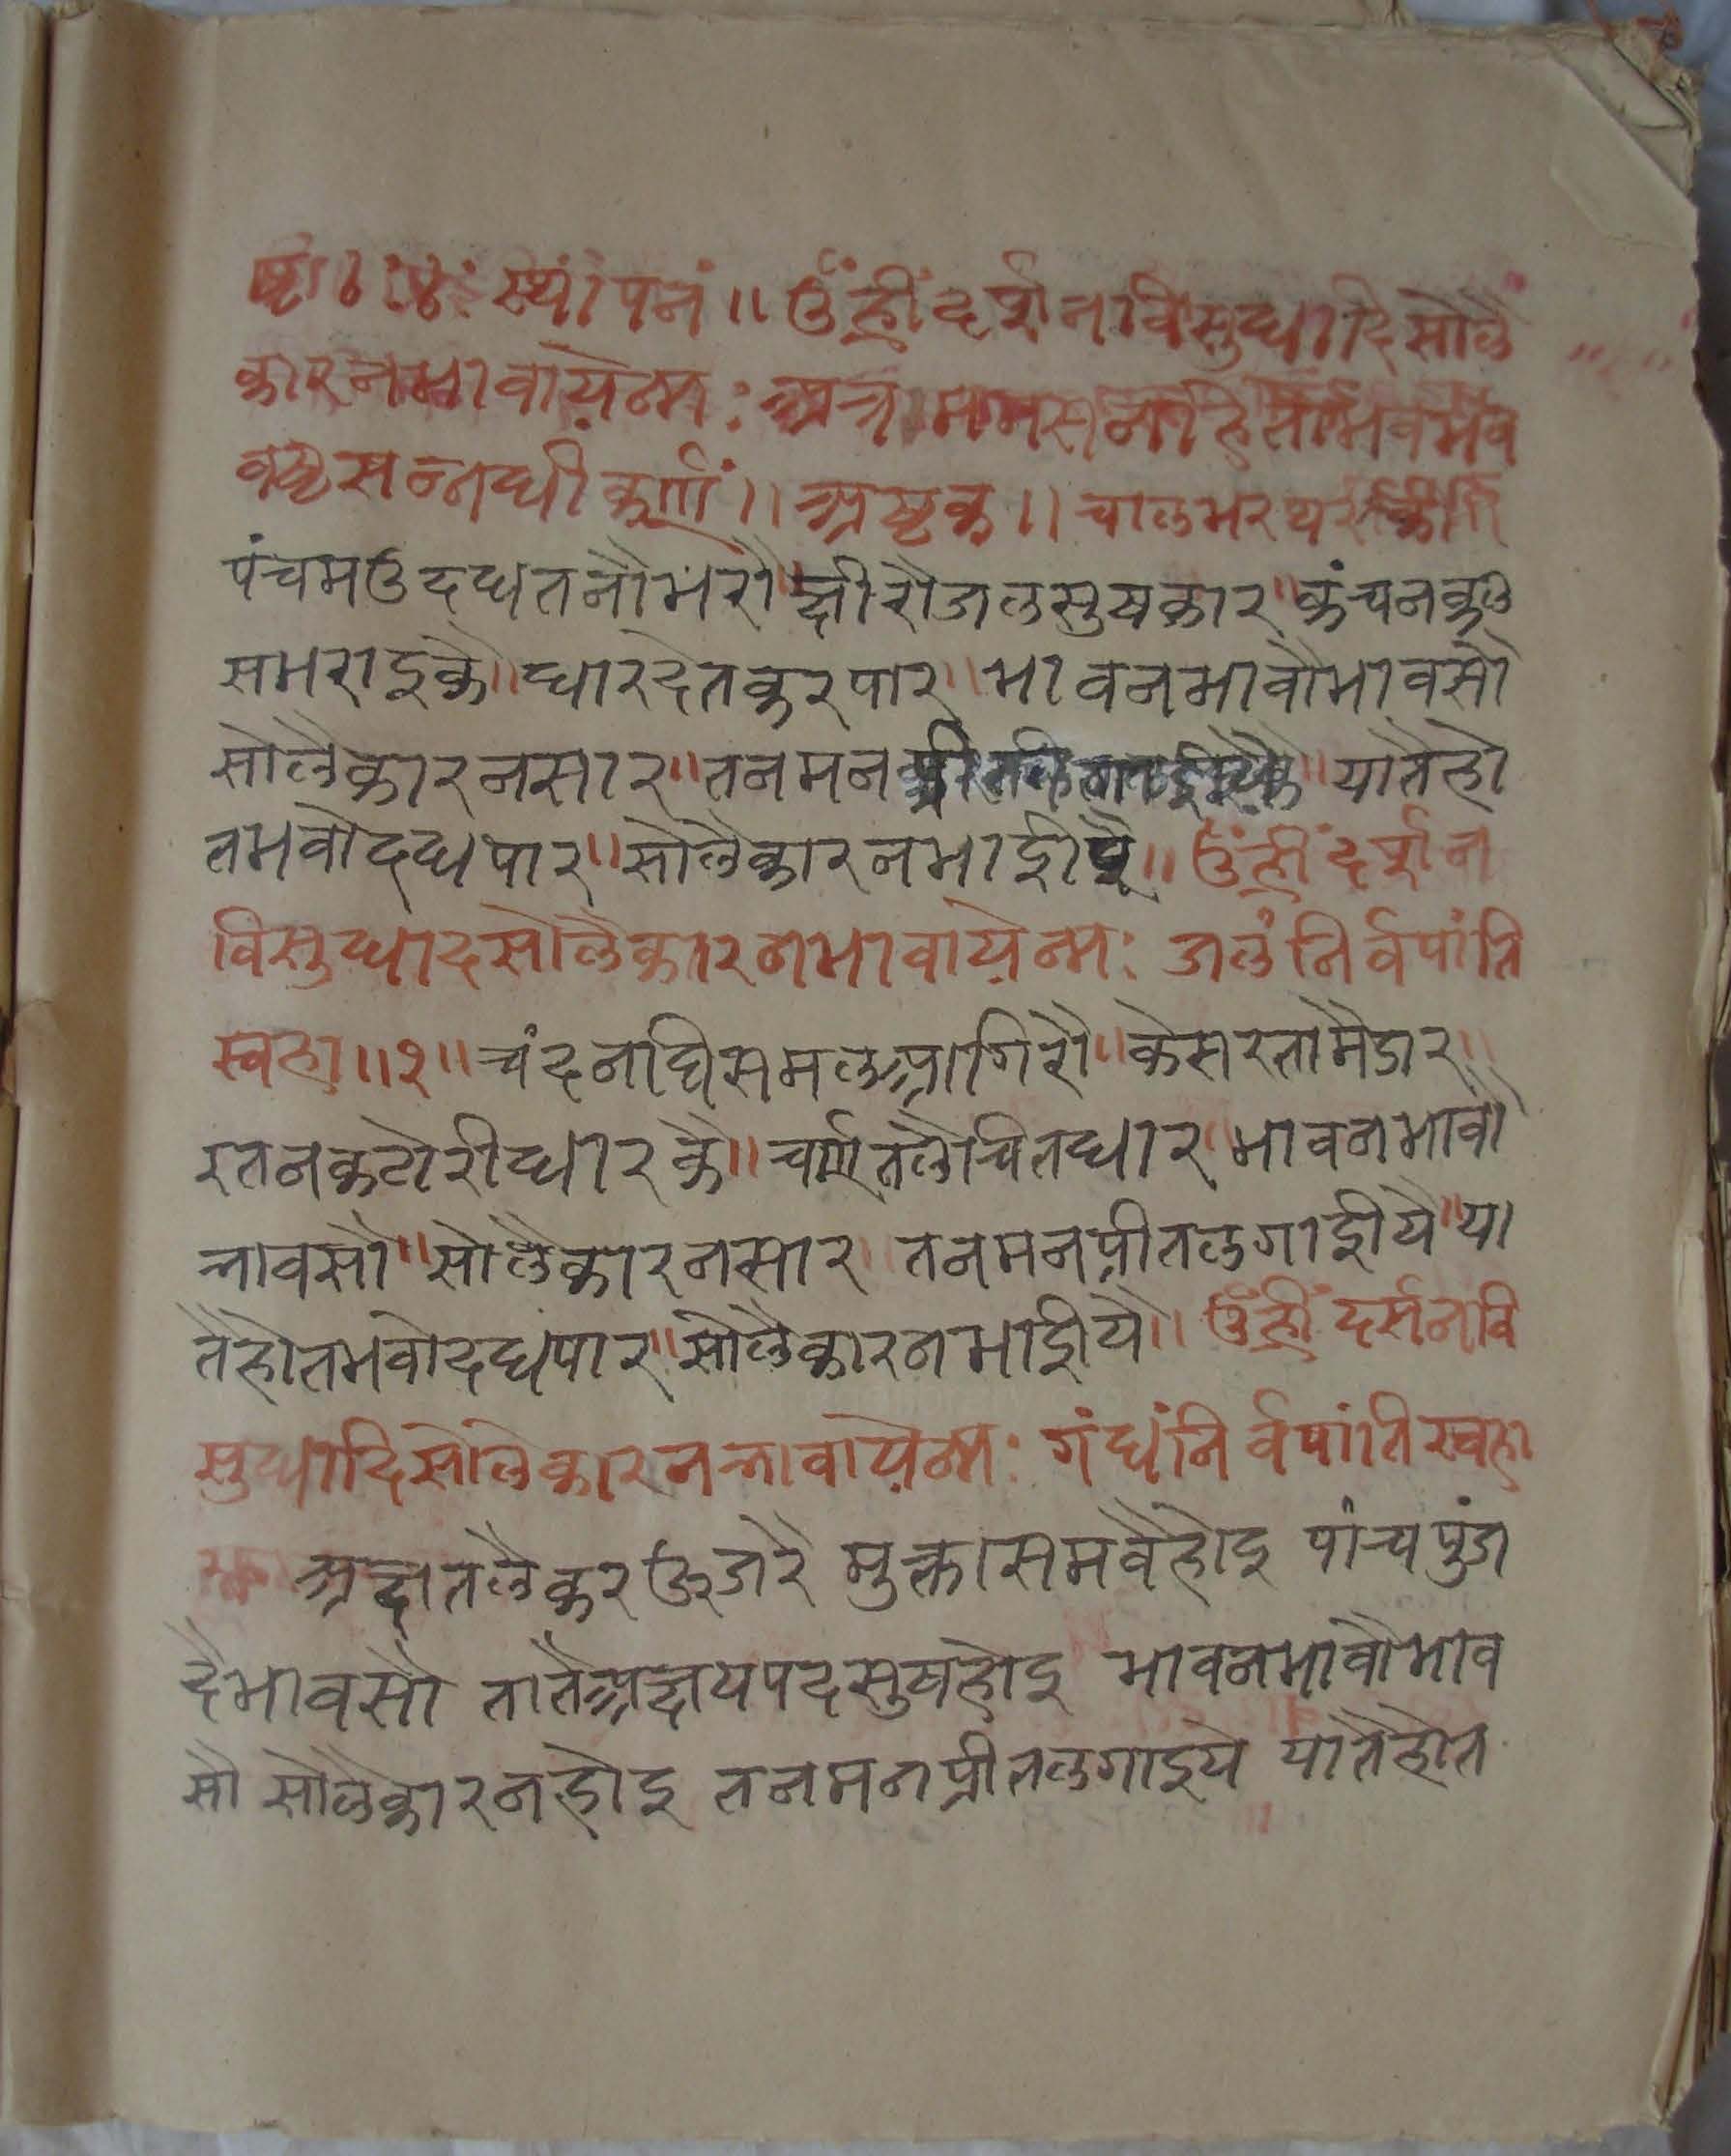 ष्ठः ठः स्थांपनं ॥ उुंह्रीं दर्शनविसुद्धादि सोलै
कारनभावायेन्मः अत्र ममसन्नहितोभवभव
वषट्सन्नधीकर्णं ॥ अष्टक ॥ चालभरथरीकी
पंचमउदधतनौभरौ ॥ क्षीरोजलसुषकार ॥ कंचनकल
सभराइकै ॥ धारदेतकरपार ॥ भावनभावौभावसौ
सोलैकारनसार ॥ तनमन यातैहो
तभवोदधपार ॥ सोलैकारनभाईयै ॥ उुंह्रीं दर्शन
विसुद्धादसोलैकारनभावायेन्मः जलं निर्वपांति
स्वहा ॥ १ ॥ चंदनघिसमलआगिरौ ॥ केसरतामैडार ॥
रतनकटोरीधारकै ॥ चर्णतलैचितधार ॥ भावनभावौ
भावसौ ॥ सोलैकारनसार ॥ तनमनप्रीतलगाईयै ॥ या
तैहोतभवोदधपार ॥ सोलैकारनभाईयै ॥ उुंह्रीं दर्सनवि
सुद्धादिसोलेकारनभावायेन्मः गंधंनिर्वपांतिस्वहा
अक्षतलैकरऊजरै मुक्तासमवैहोइ पांचपुंज
दैभावसौ तातैअक्षयपदसुषहोइ भावनभावौभाव
सौ सोलैकारनहोइ तनमनप्रीतलगाइयै यातैहोत